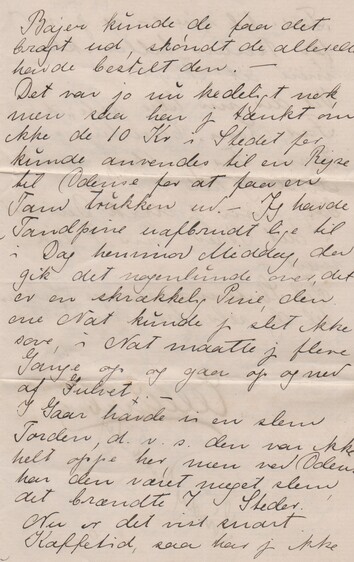 Bajer kunde de faa det
bragt ud, skøndt de allerede
havde bestilt den. —
Det var jo nu kedeligt nok
men saa har j tænkt om
ikke de 10 Kr i Stedet for
kunde anvendes til en Rejse
til Odense for at faa en
Tand trukken ud. — Jeg havde
Tandpine uafbrudt lige til
i Dag henimod Middag, da
gik det nogenlunde over, det
er en skrækkelig Pine, den
ene Nat kunde j slet ikke
sove, i Nat maatte j flere
Gange op og gaa op og ned
af Gulvet.
I Gaar havde vi en slem
Torden, d. v. s. den var ikke
helt oppe her, men ved Odense
har den været meget slem,
det brændte 7 Steder.
Nu er det vist snart
Kaffetid, saa har j ikke